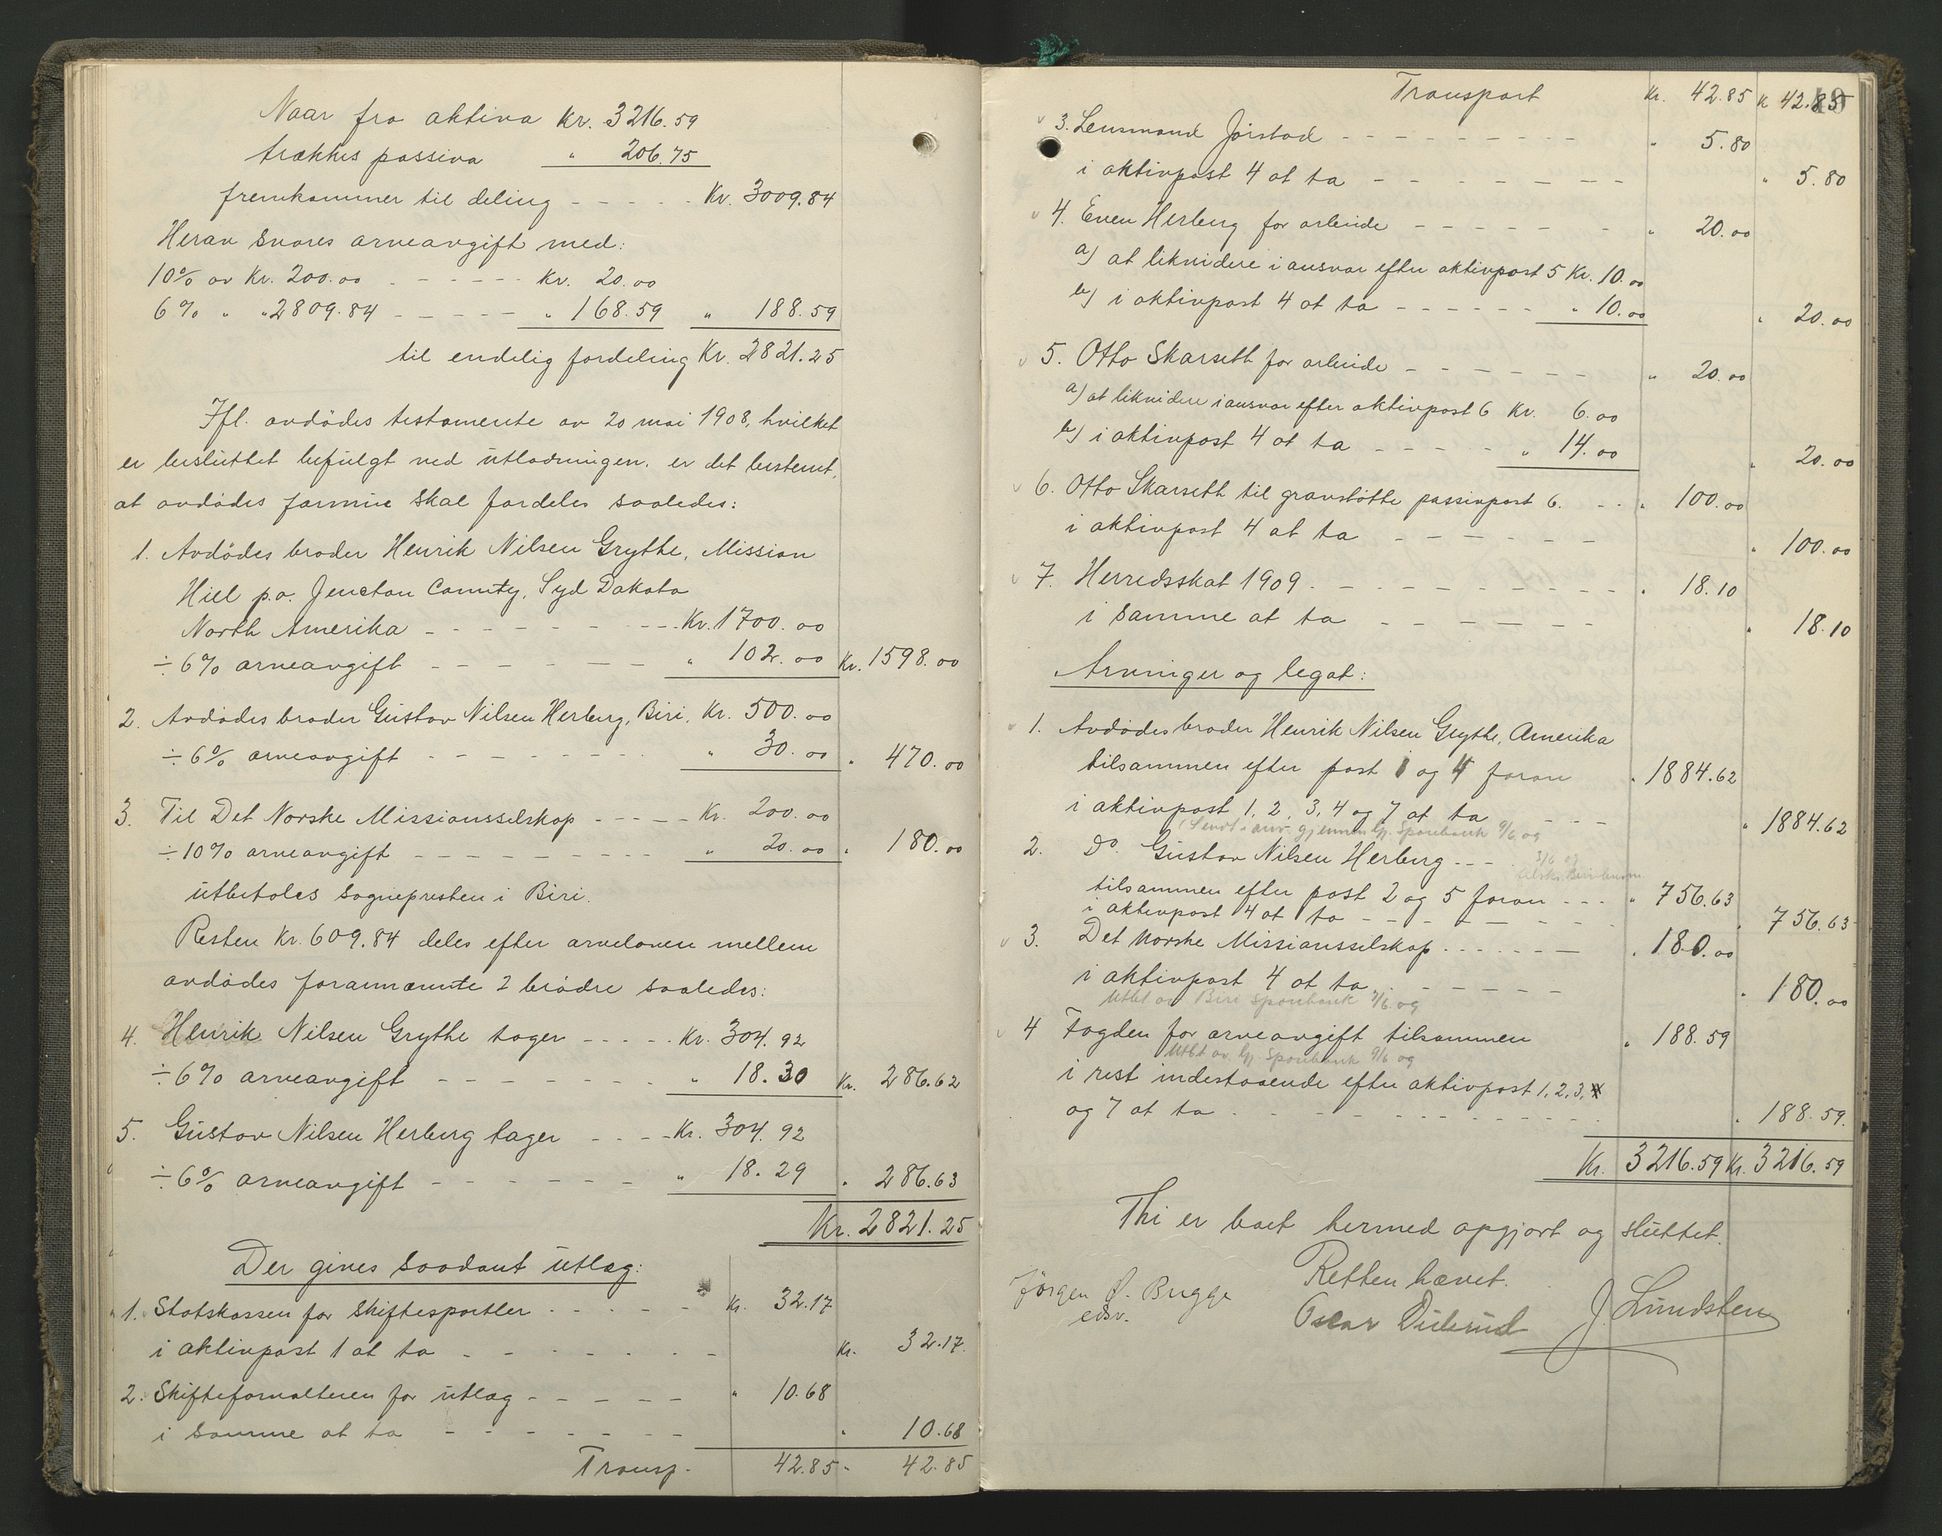 Naar fra aktiva Kr. 3216.59
trækkes passiva " 206.75
fremkommer til deling - - - - - Kr. 3009.84
Herav svares arveavgift med:
10% av Kr. 200.00 - - - - - Kr. 20.00
6% " " 2809.84 - - - - - " 168.59 " 188.59
til endelig fordeling Kr. 2821.25
Ifl. avdødes testamente av 20 mai 1908, hvilket
er besluttet befulgt ved utlodningen, er det bestemt,
at avdødes formue skal fordeles saaledes:
1. Avdødes broder Henrik Nilsen Grythe, Mission
Hiel p.o. Jencton County, Syd Dakota
North Amerika - - - - - - - Kr. 1700.00
÷ 6% arveavgift - - - - - - " 102.00 Kr. 1598.00
2. Avdødes broder Gustav Nilsen Herberg, Biri, Kr. 500.00
÷ 6% arveavgift - - - - - - " 30.00 " 470.00
3. Til Det Norske Missionsselskap - - - - - Kr. 200.00
÷ 10% arveavgift - - - - - - - - " 20.00 " 180.00
utbetales sognepresten i Biri.
Resten Kr. 609.84 deles efter arveloven mellem
avdødes forannævnte 2 brødre saaledes:
4. Henrik Nilsen Grythe tager - - - - - Kr. 304.92
÷ 6% arveavgift - - - - - - - " 18.30 Kr. 286.62
5. Gustav Nilsen Herberg tager - - - - Kr. 304.92
÷ 6% arveavgift - - - - - - " 18.29 " 286.63
Kr. 2821.25
Der gives saadant utlæg:
1. Statskassen for skiftesportler - - - - - Kr. 32.17
i aktivpost 1 at ta - - - - - - - Kr. 32.17.
2. Skifteforvalteren for utlæg - - - - - " 10.68
i samme at ta - - - - - - - " 10.68
Transp. 42.85 " 42.85
Transport Kr. 42.85 K 42.85
3. Lensmand Jørstad - - - - - - - - - " 5.80
i aktivpost 4 at ta - - - - - - - - " 5.80
4. Even Herberg for arbeide - - - - - - - " 20.00
a) at likvidere i ansvar efter aktivpost 5 Kr. 10.00
b) i aktivpost 4 at ta - - - - - - " 10.00 " 20.00
5. Otto Skarseth for arbeide - - - - - - " 20.00
a) at likvidere i ansvar efter aktivpost 6 Kr. 6.00
b) i aktivpost 4 at ta - - - - - " 14.00 " 20.00
6. Otto Skarseth til gravstøtte passivpost 6. - - " 100.00
i aktivpost 4 at ta - - - - - - " 100.00
7. Herredsskat 1909 - - - - - - - - - " 18.10
i samme at ta - - - - - - " 18.10
Arvinger og legat:
1. Avdødes broder Henrik Nilsen Grythe, Amerika
tilsammen efter post 1 og 4 foran " 1884.62
i aktivpost 1, 2, 3, 4 og 7 at ta - - - " 1884.62
(Sendt i anv. gjennem Gj. Sparebank 9/6 og
2. Do Gustav Nilsen Herberg - - -
tilsammen efter post 2 og 5 foran - - - " 756.63
i aktivpost 4 at ta - - - - - - - " 756.63
3. Det norske Missionsselskap - - - - - - - " 180.00
i aktivpost 4 at ta - - - - - - " 180.00
Utbt av Biri Sparebank 9/6 og
4 Fogden for arveavgift tilsammen " 188.59
Utbt av Gj. Sparebank 9/6 og
i rest indestaaende efter aktivpost 1, 2, 3, 4
og 7 at ta - - - - - - - - - - " 188.59.
Kr. 3216.59 Kr. 3216.59
Thi er boet hermed opgjort og sluttet.
Retten hævet.
Jørgen Ø. Bugge
edsv.
Oscar Diserud
J. Lundsten